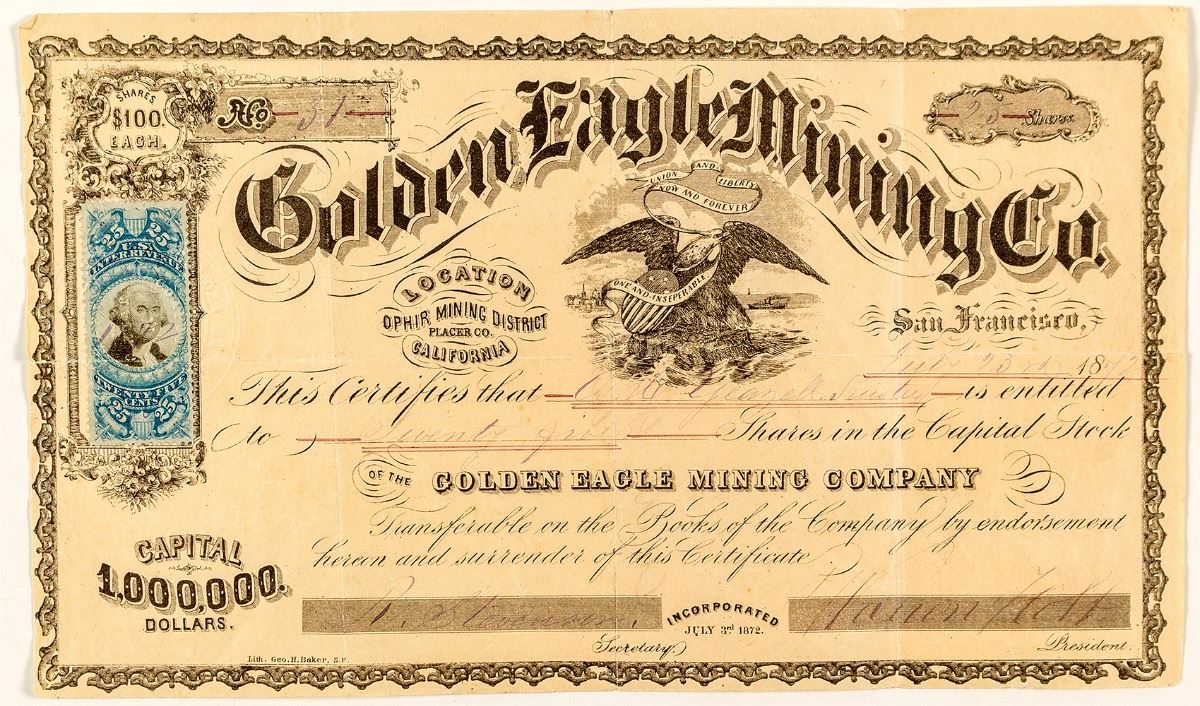 SHARES
$100.
EACH.
No 31
25 Shares
Golden Eagle Mining Co.
UNION AND LIBERTY
NOW AND FOREVER
ONE AND INSEPERABLE
LOCATION
OPHIR MINING DISTRICT
PLACER CO.
CALIFORNIA
San Francisco,
23rd 1872
25 25
U.S.
INTER. REVENUE
TWENTY FIVE
CENTS
25 25
This Certifies that Trustee is entitled
to Twenty five Shares in the Capital Stock
OF THE GOLDEN EAGLE MINING COMPANY
Transferable on the Books of the Company by endorsement
hereon and surrender of this Certificate
CAPITAL
1,000,000.
DOLLARS.
INCORPORATED
JULY 3rd 1872.
Secretary
President.
Lith. Geo. H. Baker, S.F.